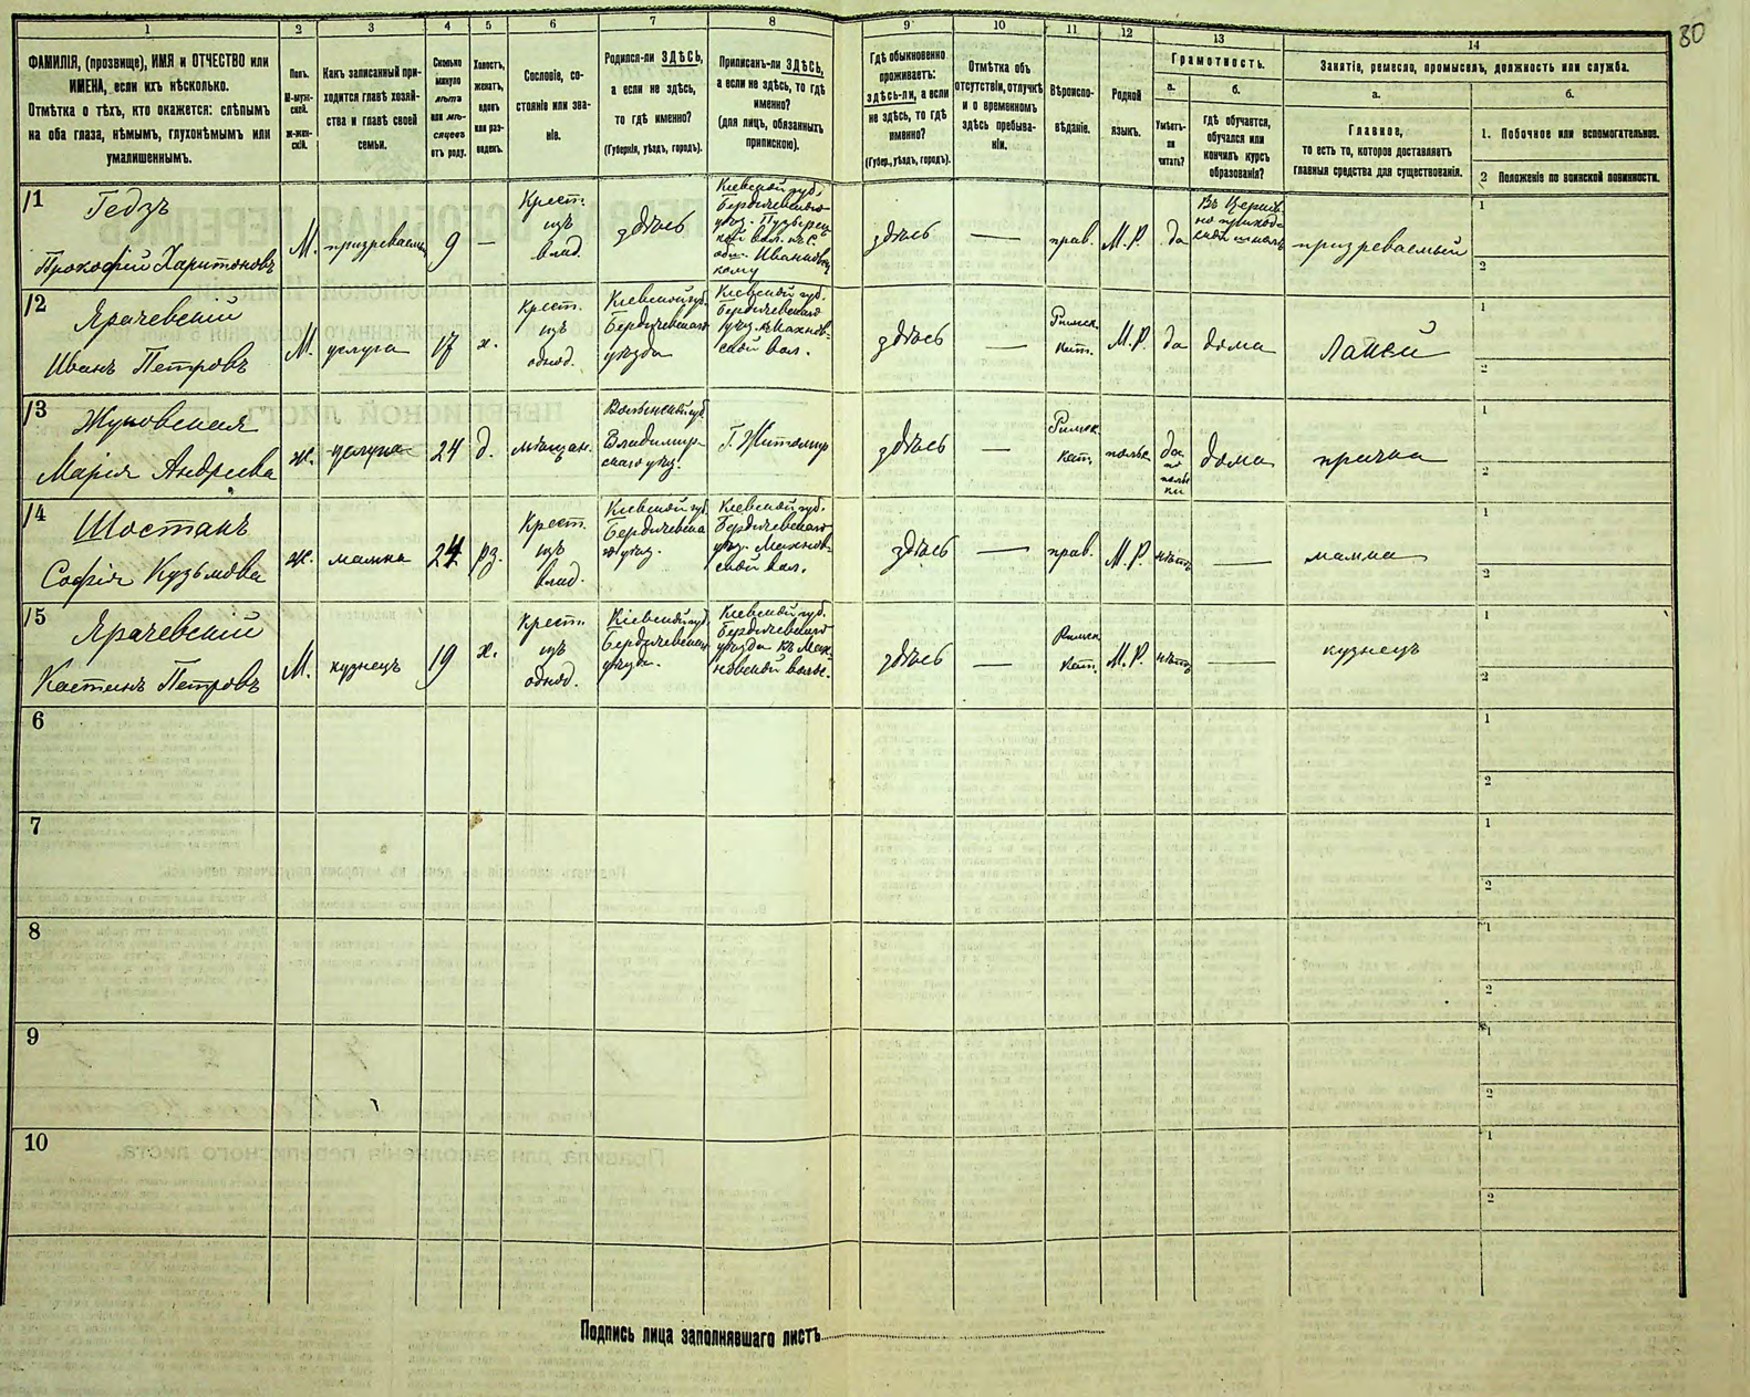 80
1 2 3 4 5 6 7 8 9 10 11 12 13 14
ФАМИЛІЯ, (прозвище), ИМЯ и ОТЧЕСТВО или
ИМЕНА, если ихъ нѣсколько.
Отмѣтка о тѣхъ, кто окажется: слѣпымъ
на оба глаза, нѣмымъ, глухонѣмымъ или
умалишеннымъ.
Полъ.
М-муж-
ской.
ж-жен-
скій.
Какъ записанный при-
ходится главѣ хозяй-
ства и главѣ своей
семьи.
Сколько
минуло
лѣтъ
или мѣ-
сяцевъ
отъ роду.
Холостъ,
женатъ,
вдовъ
или раз-
веденъ.
Сословіе, со-
стояніе или зва-
ніе.
Родился-ли ЗДѢСЬ,
а если не здѣсь,
то гдѣ именно?
(Губернія, уѣздъ, городъ).
Приписанъ-ли ЗДѢСЬ,
а если не здѣсь, то гдѣ
именно?
(для лицъ, обязанныхъ
припискою).
Гдѣ обыкновенно
проживаетъ:
здѣсь-ли, а если
не здѣсь, то гдѣ
именно?
(Губер., уѣздъ, городъ).
Отмѣтка объ
отсутствіи, отлучкѣ
и о временномъ
здѣсь пребыва-
ніи.
Вѣроиспо-
вѣданіе.
Родной
языкъ.
Грамотность.
а.
Умѣетъ-
ли
читать?
б.
гдѣ обучается,
обучался или
кончилъ курсъ
образованія?
Занятіе, ремесло, промыселъ, должность или служба.
а.
Главное,
то есть то, которое доставляетъ
главныя средства для существованія.
б.
1. Побочное или вспомогательное.
2 Положеніе по воинской повинности.
1
Гедзъ
Прокофій Харитоновъ
М.
призреваемый
9
—
Крест.
изъ
влад.
здѣсь
Кіевской губ.
Бердичевскаго
уѣзд.
здѣсь
—
прав.
М.Р.
да
призреваемый
1
2
2
Ярачевскій
Иванъ Петровъ
М.
услуга
17
х.
Крест.
изъ
однод.
Кіевской губ.
Бердичевскаго
уѣзда
Кіевской губ.
Бердичевскаго
уѣзд. къ Махнов-
ской вол.
здѣсь
—
Римск.
кат.
М.Р.
да
дома
Лакей
1
2
3
Жуковская
Марія Андреева
ж.
услуга
24
д.
мѣщан.
Волынской губ.
Владимир-
скаго уѣз.
Г. Житомир
здѣсь
—
Римск.
кат.
польс
да
по
поль
ски
дома
прачка
1
2
4
Шостакъ
Софія Кузьмова
ж.
мамка
24
рз.
Крест.
изъ
влад.
Кіевской губ.
Бердичевска
го уѣзд.
Кіевской губ.
Бердичевскаго
уѣзд. Махнов-
ской вол.
здѣсь
—
прав.
М.Р.
нѣтъ
—
мамка
1
2
5
Ярачевскій
Кастанъ Петровъ
М.
кузнецъ
19
х.
Крест.
изъ
однод.
Кіевской губ.
Бердичевскаго
уѣзда.
Кіевской губ.
Бердичевскаго
уѣзда къ Мах-
новской волос.
здѣсь
—
Римск
кат.
М.Р.
нѣтъ
—
кузнецъ
1
2
6
1
2
7
1
2
8
1
2
9
1
2
10
1
2
Подпись лица заполнявшаго листъ